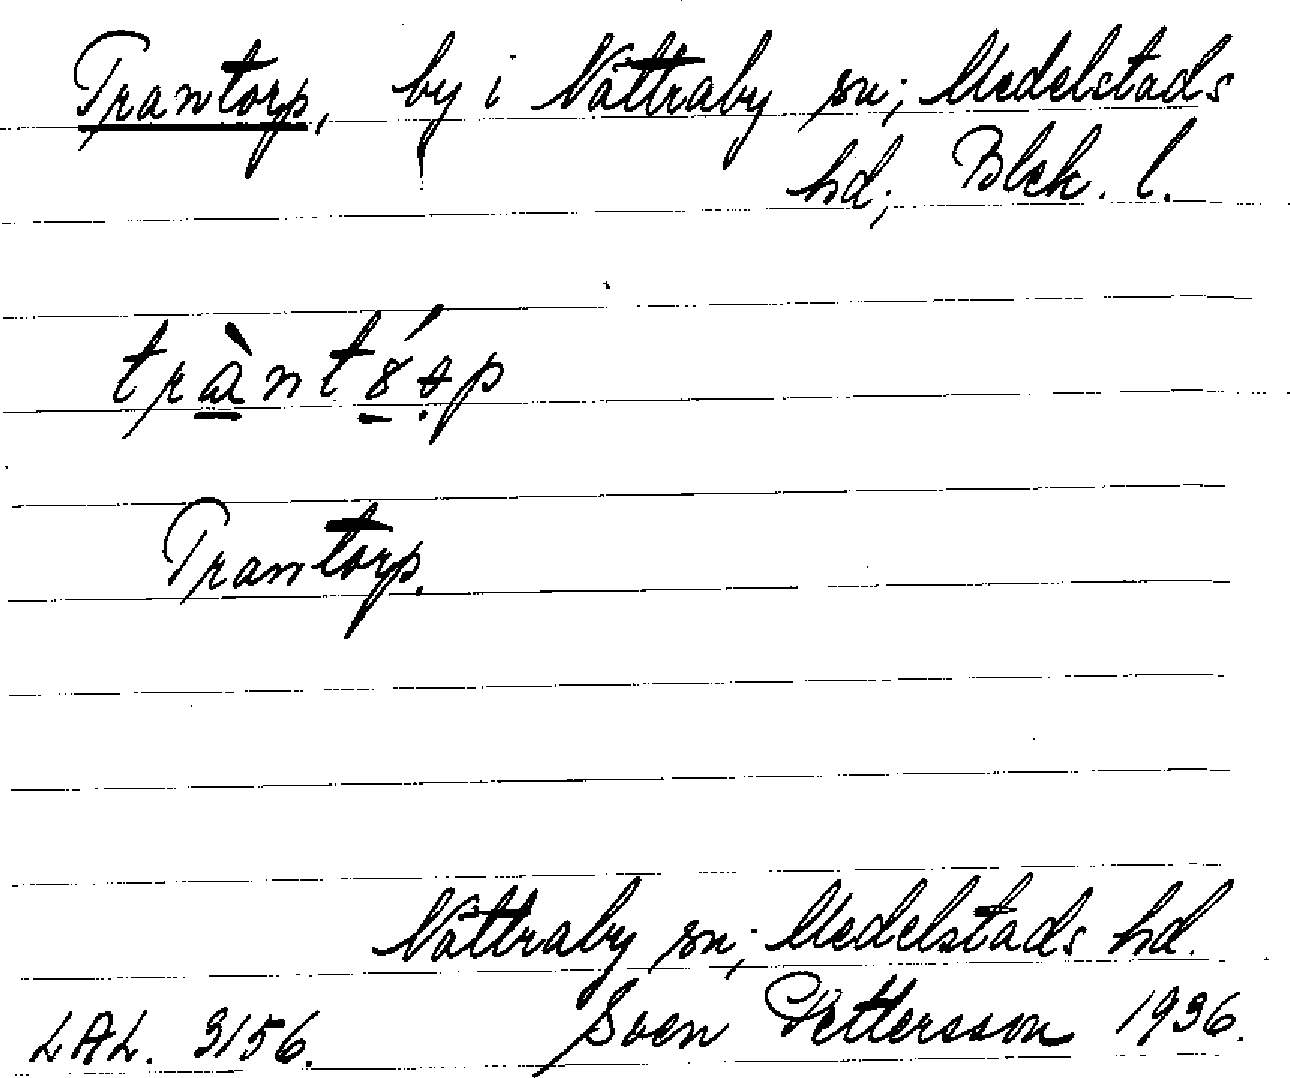 Trantorp, by i Nättraby sn; Medelstads
hd; Blek. l.
Trantorp.
Nättraby sn; Medelstads hd.
LAL. 3156. Sven Pettersson 1936.